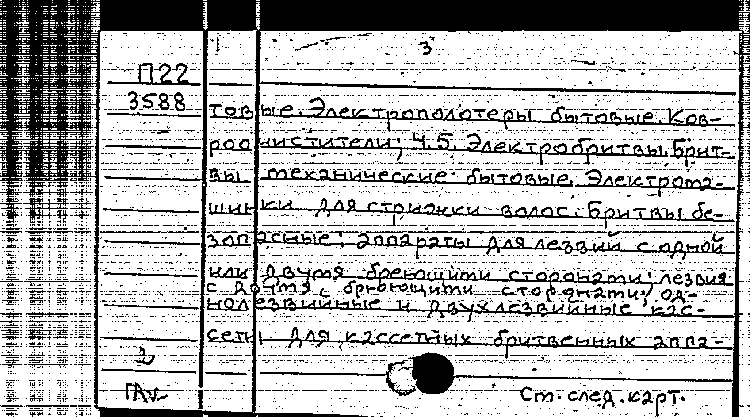 3
П22
3588
товые. Электрополотеры бытовые. Ков-
роочистители; Ч.5. Электробритвы. Брит-
вы механические бытовые. Электрома-
шинки для стрижки волос. Бритвы бе-
зопасные: аппараты для лезвий с одной
или двумя бреющими сторонами; лезвия
с двумя бреющими сторонами; од-
нолезвийные и двухлезвийные кас-
сеты для кассетных бритвенных аппа-
2
Ст. след. карт.